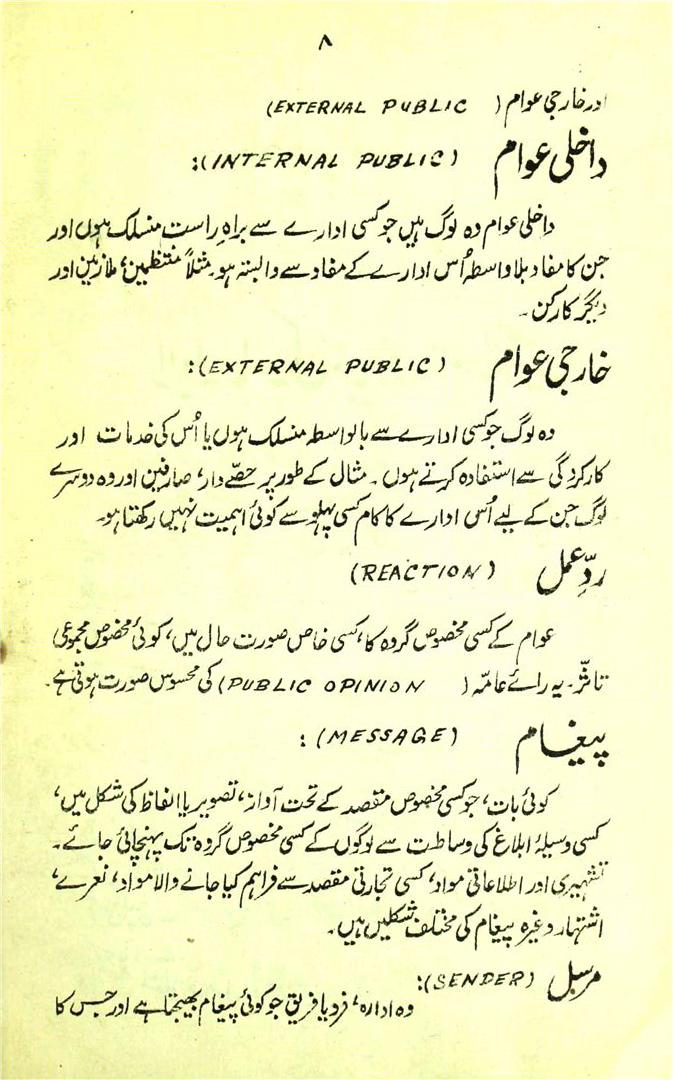 ۸
اور خارجی عوام (EXTERNAL PUBLIC)
داخلی عوام (INTERNAL PUBLIC):
داخلی عوام وہ لوگ ہیں جو کسی ادارے سے براہِ راست منسلک ہوں اور
جن کا مفاد بلا واسطہ اُس ادارے کے مفاد سے وابستہ ہو۔ مثلاً منتظمین، ملازمین اور
دیگر کارکن۔
خارجی عوام (EXTERNAL PUBLIC):
وہ لوگ جو کسی ادارے سے بالواسطہ منسلک ہوں یا اُس کی خدمات اور
کارکردگی سے استفادہ کرتے ہوں۔ مثال کے طور پر حصّے دار، صارفین اور وہ دوسرے
لوگ جن کے لیے اُس ادارے کا کام کسی پہلو سے کوئی اہمیت نہیں رکھتا ہو۔
ردِّ عمل (REACTION)
عوام کے کسی مخصوص گروہ کا، کسی خاص صورت حال میں، کوئی مخصوص مجموعی
تاثّر۔ یہ رائے عامّہ (PUBLIC OPINION) کی محسوس صورت ہوتی ہے۔
پیغام (MESSAGE):
کوئی بات، جو کسی مخصوص مقصد کے تحت آواز، تصویر یا الفاظ کی شکل میں،
کسی وسیلۂ ابلاغ کی وساطت سے لوگوں کے کسی مخصوص گروہ تک پہنچائی جائے۔
تشہیری اور اطلاعاتی مواد، کسی تجارتی مقصد سے فراہم کیا جانے والا مواد، نعرے،
اشتہار وغیرہ پیغام کی مختلف شکلیں ہیں۔
مرسل (SENDER):
وہ ادارہ، فرد یا فریق جو کوئی پیغام بھیجتا ہے اور جس کا